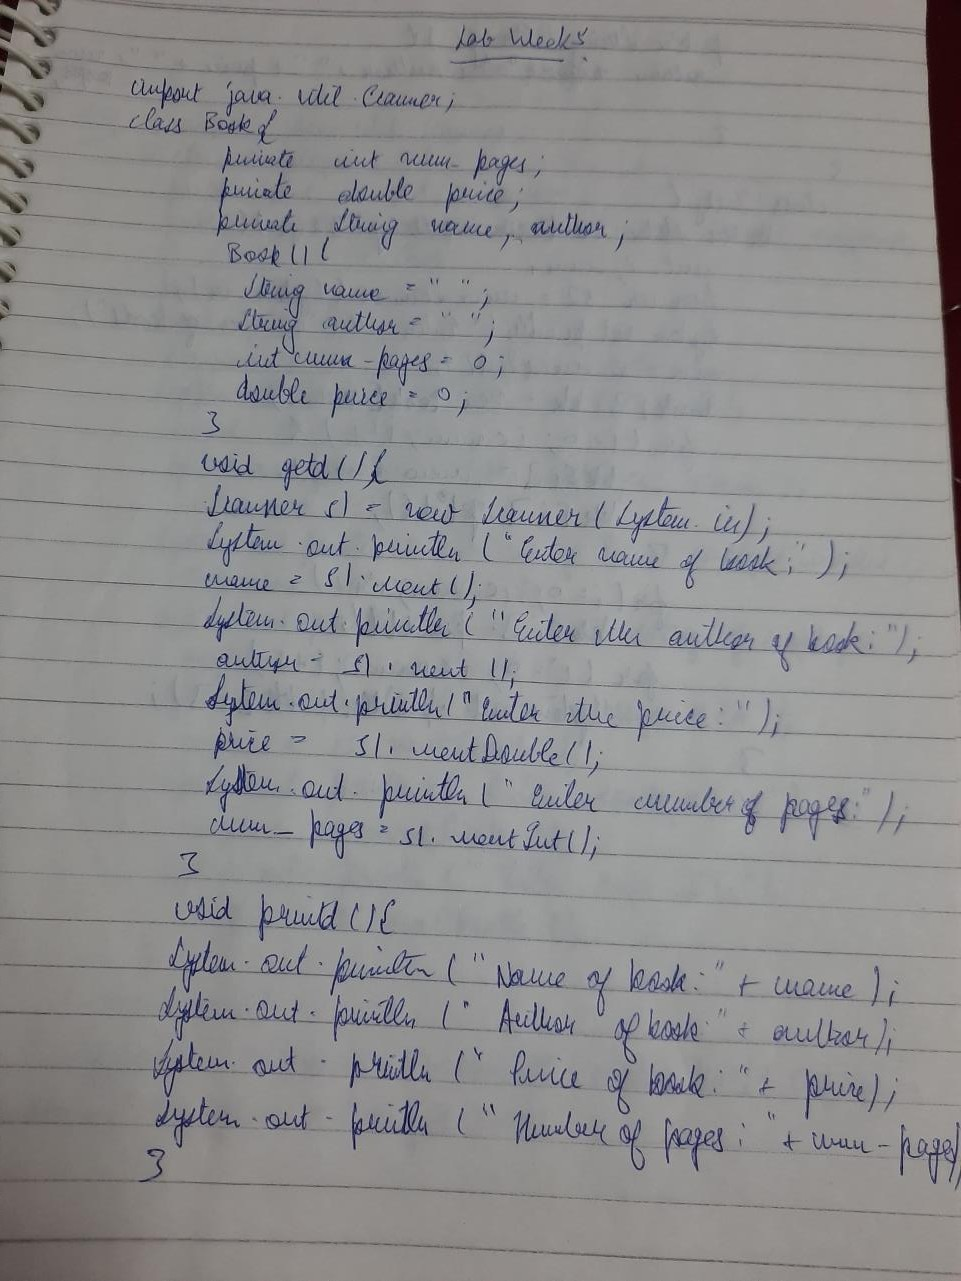 Lab Week5
import java.util.Scanner;
class Book{
private int num_pages;
private double price;
private String name, author;
Book(){
String name = " ";
String author = " ";
int num_pages = 0;
double price = 0;
}
void getd(){
Scanner s1 = new Scanner(System.in);
System.out.println("Enter name of book:");
name = s1.next();
System.out.println("Enter the author of book:");
author = s1.next();
System.out.println("Enter the price:");
price = s1.nextDouble();
System.out.println("Enter number of pages:");
num_pages = s1.nextInt();
}
void printd(){
System.out.println("Name of book:" + name);
System.out.println("Author of book:" + author);
System.out.println("Price of book:" + price);
System.out.println("Number of pages:" + num_pages)
}